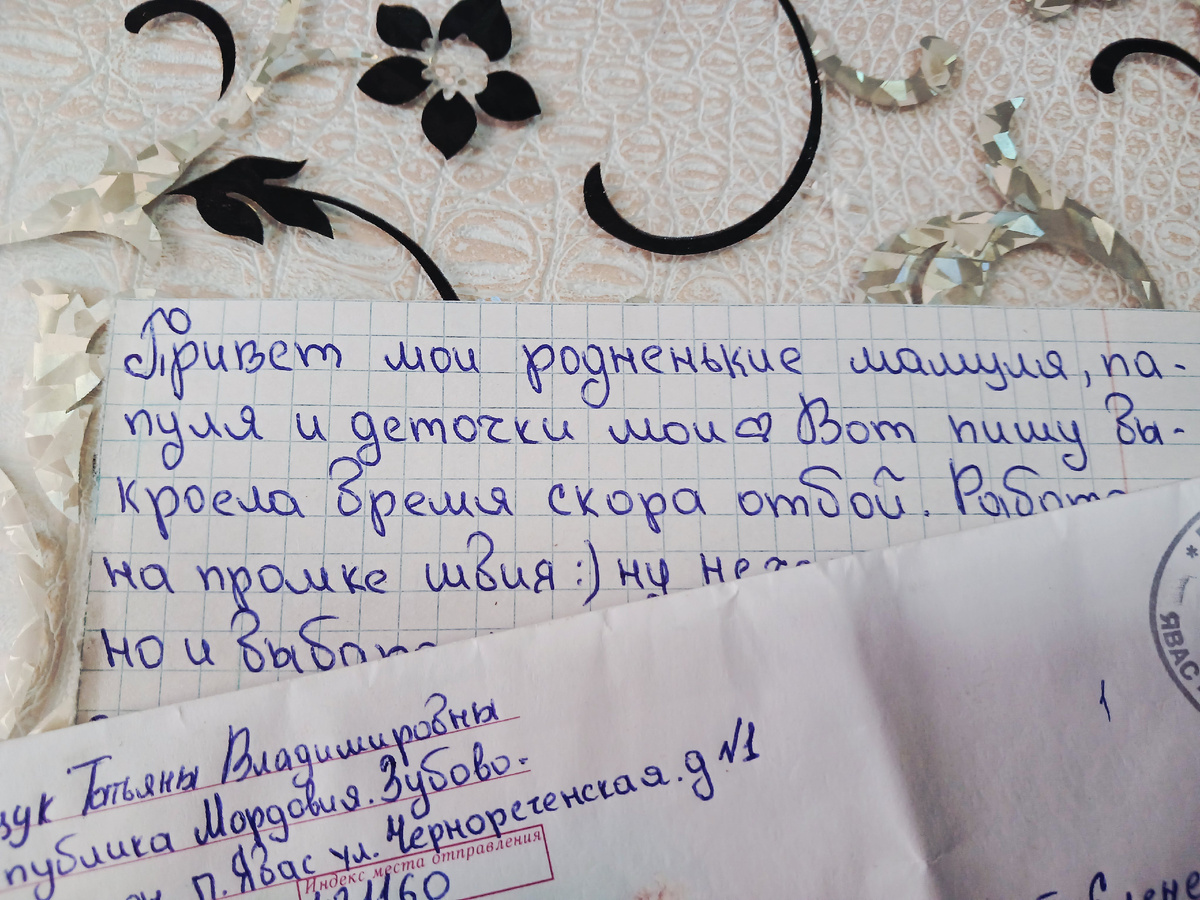 Привет мои родненькие мамуля, па-
пуля и деточки мои Вот пишу вы-
кроела время скора отбой.
на промке швия :) ну
но и
Татьяны Владимировны
Мордовия. Зубово-
п. Явас ул. Чернореченская. д №1
Индекс места отправления
ЯВАС
1